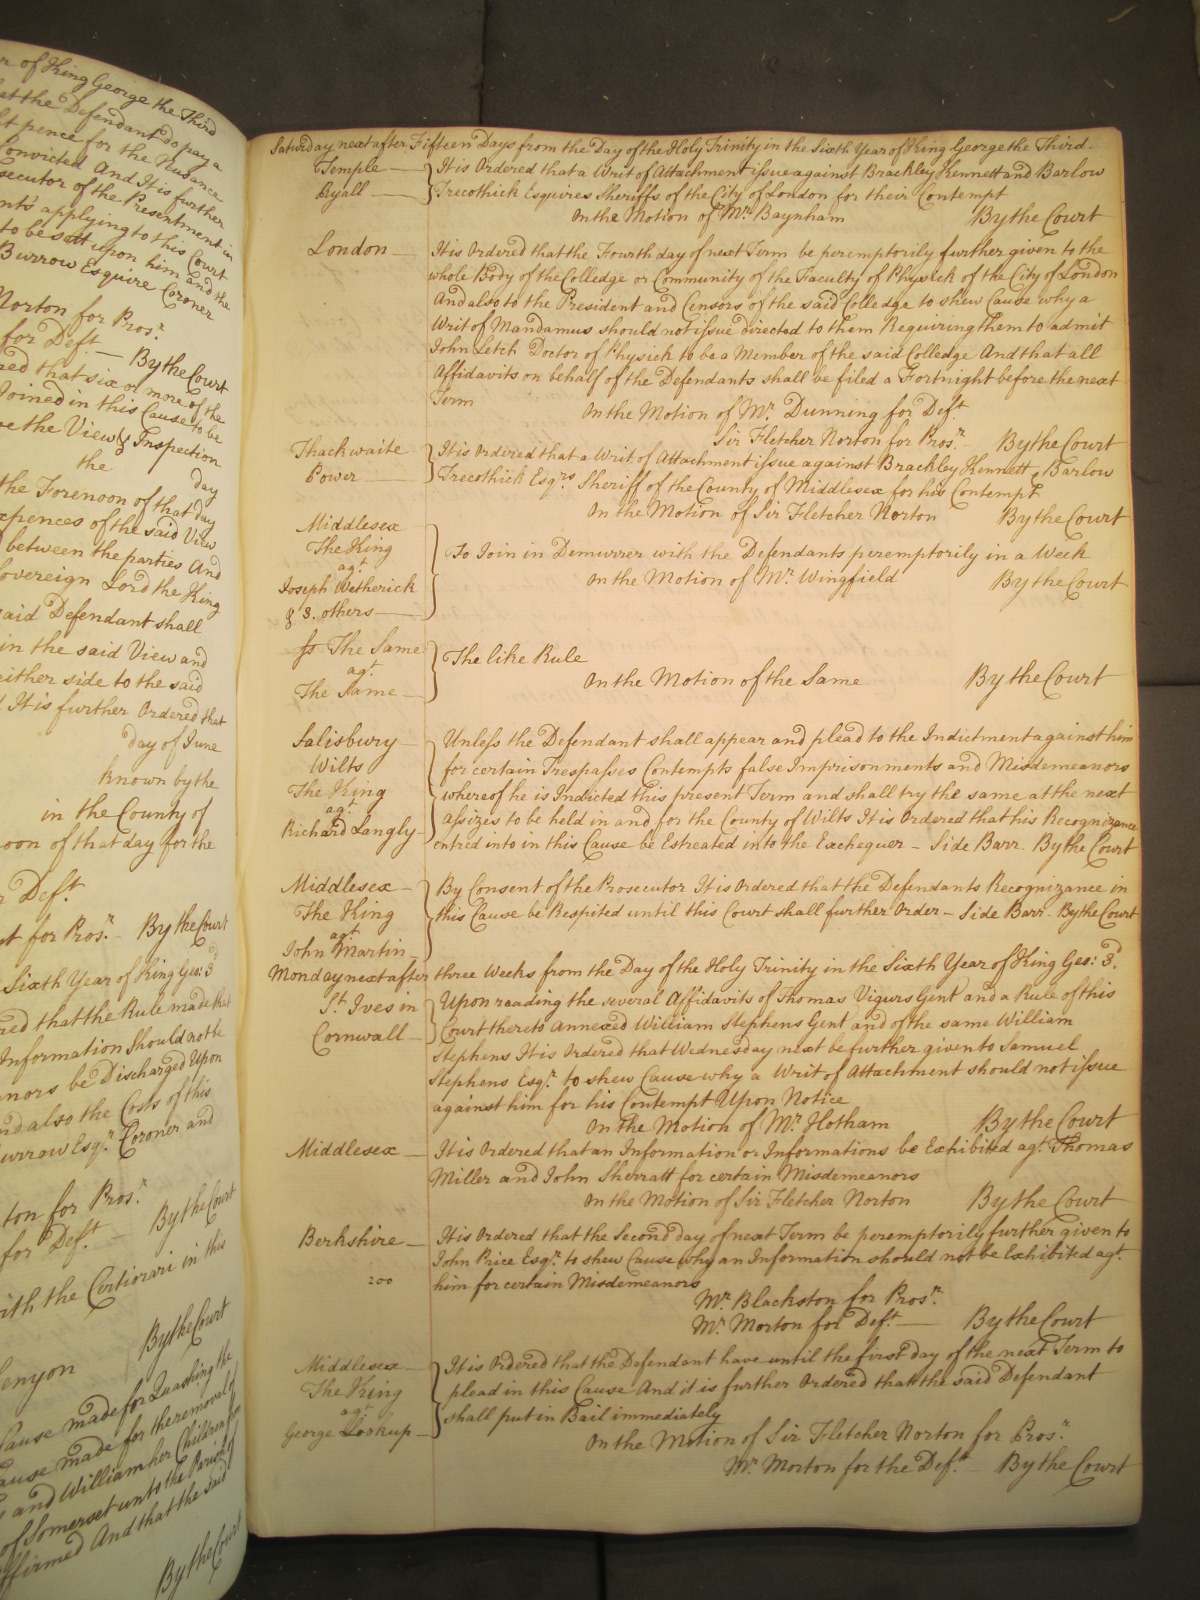 r of King George the Third
at the Defendant do pay a
t pence for the Nusance
Convicted And It is further
secutor of the Presentment in
nts applying to this Court
to be sett upon him and the
Burrow Esquire Coroner
Norton for Pros.r
for Def.t — By the Court
reed that six or more of the
Joined in this Cause to be
ve the View & Inspection
the day
the Forenoon of that day
xpences of the said View
between the parties And
Sovereign Lord the King
said Defendant shall
in the said View and
either side to the said
It is further Ordered that
day of June
known by the
in the County of
noon of that day for the
r Def.t
t for Pros.r — By the Court
Sixth Year of King Geo: 3.d
red that the Rule made that
Information Should not be
nors be Discharged Upon
nd also the Costs of this
urrow Esq.r Coroner and
ton for Pros.r
for Def.t — By the Court
ith the Certiorari in this
By the Court
enyon
Cause made for Quashing the
ause made for the removal of
s and William her Children from
of Somerset unto the Parish
ffirmed And that the said
By the Court
Saturday next after Fifteen Days from the Day of the Holy Trinity in the Sixth Year of King George the Third.
Temple — It is Ordered that a Writ of Attachment issue against Brackley Kennett and Barlow
Ryall — Trecothick Esquires Sheriffs of the City of London for their Contempt
On the Motion of Mr. Baynham By the Court
London — It is Ordered that the Fourth day of next Term be peremptorily further given to the
whole Body of the Colledge or Community of the Faculty of Physick of the City of London
And also to the President and Censors of the said Colledge to shew Cause why a
Writ of Mandamus should not issue directed to them Requiring them to admit
John Letch Doctor of Physick to be a Member of the said Colledge And that all
Affidavits on behalf of the Defendants shall be filed a Fortnight before the next
Term On the Motion of Mr. Dunning for Def.t
Sir Fletcher Norton for Pros.r — By the Court
Thackwaite It is Ordered that a Writ of Attachment issue against Brackley Kennett & Barlow
Power Trecothick Esq.rs Sheriff of the County of Middlesex for his Contempt
On the Motion of Sir Fletcher Norton By the Court
Middlesex
The King To Join in Demurrer with the Defendants peremptorily in a Week
ag.t
Joseph Wetherick On the Motion of Mr. Wingfield By the Court
& 3. others —
ss The Same The like Rule
ag.t
The Same — On the Motion of the Same By the Court
Salisbury — Unless the Defendant shall appear and plead to the Indictment against him
Wilts for certain Trespasses Contempts false Imprisonments and Misdemeanors
The King whereof he is Indicted this present Term and shall try the same at the next
ag.t assizes to be held in and for the County of Wilts It is Ordered that his Recognizance
Richard Langly — entred into in this Cause be Estreated into the Exchequer — Side Barr. By the Court
Middlesex — By Consent of the Prosecutor It is Ordered that the Defendants Recognizance in
The King this Cause be Respited until this Court shall further Order — Side Barr. By the Court
ag.t
John Martin
Monday next after three Weeks from the Day of the Holy Trinity in the Sixth Year of King Geo: 3.d
St. Ives in Upon reading the several Affidavits of Thomas Vigurs Gent and a Rule of this
Cornwall — Court thereto Annexed William Stephens Gent and of the same William
Stephens It is Ordered that Wednesday next be further given to Samuel
Stephens Esq.r to shew Cause why a Writ of Attachment should not issue
against him for his Contempt Upon Notice
On the Motion of Mr. Hotham By the Court
Middlesex — It is Ordered that an Information or Informations be Exhibited ag.t Thomas
Miller and John Sherratt for certain Misdemeanors
On the Motion of Sir Fletcher Norton By the Court
Berkshire — It is Ordered that the Second day of next Term be peremptorily further given to
John Price Esq.r to shew Cause why an Information should not be Exhibited ag.t
200 him for certain Misdemeanors
Mr. Blackston for Pros.r
Mr. Morton for Def.t — By the Court
Middlesex — It is Ordered that the Defendant have until the first day of the next Term to
The King plead in this Cause And it is further Ordered that the said Defendant
ag.t shall put in Bail immediately
George Lookup — On the Motion of Sir Fletcher Norton for Pros.r
Mr. Morton for the Def.t — By the Court